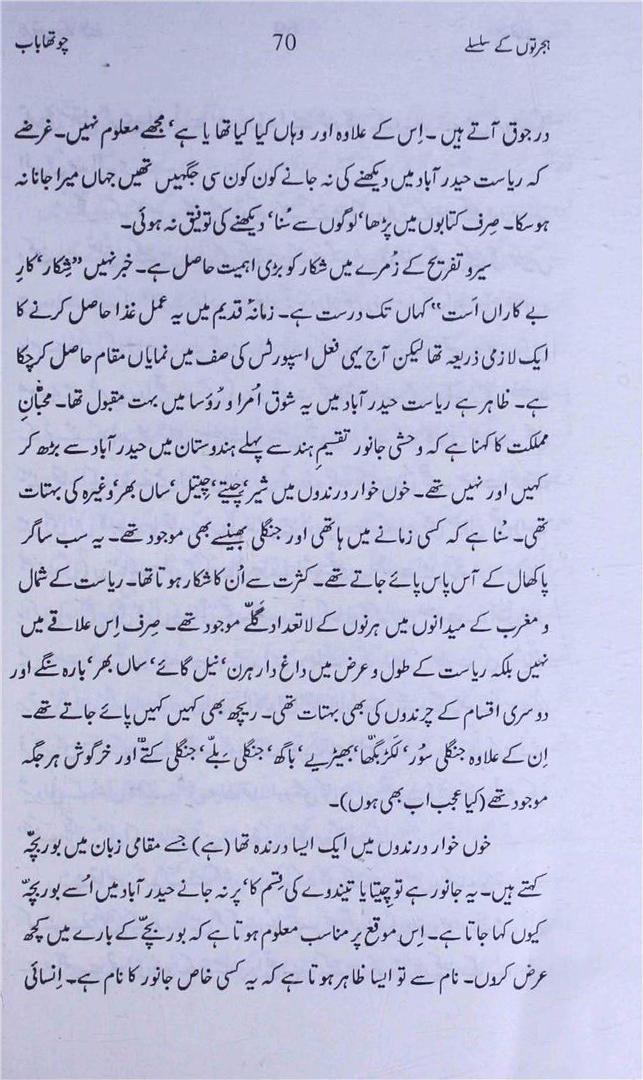 ہجرتوں کے سلسلے 70 چوتھا باب
در جوق آتے ہیں ۔ اِس کے علاوہ اور وہاں کیا کیا تھا یا ہے، مجھے معلوم نہیں۔ غرضے
کہ ریاست حیدر آباد میں دیکھنے کی نہ جانے کون کون سی جگہیں تھیں جہاں میرا جانا نہ
ہوسکا۔ صِرف کتابوں میں پڑھا، لوگوں سے سُنا، دیکھنے کی توفیق نہ ہوئی۔
سیر و تفریح کے زُمرے میں شکار کو بڑی اہمیت حاصل ہے۔ خبر نہیں ”شِکار، کارِ
بے کاراں اَست“ کہاں تک درست ہے۔ زمانۂ قدیم میں یہ عمل غذا حاصل کرنے کا
ایک لازمی ذریعہ تھا لیکن آج یہی فعل اسپورٹس کی صف میں نمایاں مقام حاصل کرچکا
ہے۔ ظاہر ہے ریاست حیدر آباد میں یہ شوق اُمرا و رُؤسا میں بہت مقبول تھا۔ محبّانِ
مملکت کا کہنا ہے کہ وحشی جانور تقسیمِ ہند سے پہلے ہندوستان میں حیدر آباد سے بڑھ کر
کہیں اور نہیں تھے۔ خوں خوار درندوں میں شیر، چیتے، چیتل، ساں بھر، وغیرہ کی بہتات
تھی۔ سُنا ہے کہ کسی زمانے میں ہاتھی اور جنگلی بھینسے بھی موجود تھے۔ یہ سب ساگر
پاکھال کے آس پاس پائے جاتے تھے۔ کثرت سے اُن کا شکار ہوتا تھا۔ ریاست کے شمال
و مغرب کے میدانوں میں ہرنوں کے لاتعداد گلّے موجود تھے۔ صِرف اِس علاقے میں
نہیں بلکہ ریاست کے طول و عرض میں داغ دار ہرن، نیل گائے، ساں بھر، بارہ سنگے اور
دوسری اقسام کے چرندوں کی بھی بہتات تھی۔ ریچھ بھی کہیں کہیں پائے جاتے تھے۔
اِن کے علاوہ جنگلی سوُر، لکڑبگھّا، بھیڑیے، باگھ، جنگلی بلّے، جنگلی کتّے اور خرگوش ہر جگہ
موجود تھے (کیا عجب اب بھی ہوں)۔
خوں خوار درندوں میں ایک ایسا درندہ تھا (ہے) جسے مقامی زبان میں بوربچّہ
کہتے ہیں۔ یہ جانور ہے تو چیتا یا تیندوے کی قِسم کا، پر نہ جانے حیدر آباد میں اُسے بوربچّہ
کیوں کہا جاتا ہے۔ اِس موقع پر مناسب معلوم ہوتا ہے کہ بوربچّے کے بارے میں کچھ
عرض کروں۔ نام سے تو ایسا ظاہر ہوتا ہے کہ یہ کسی خاص جانور کا نام ہے۔ اِنسائی